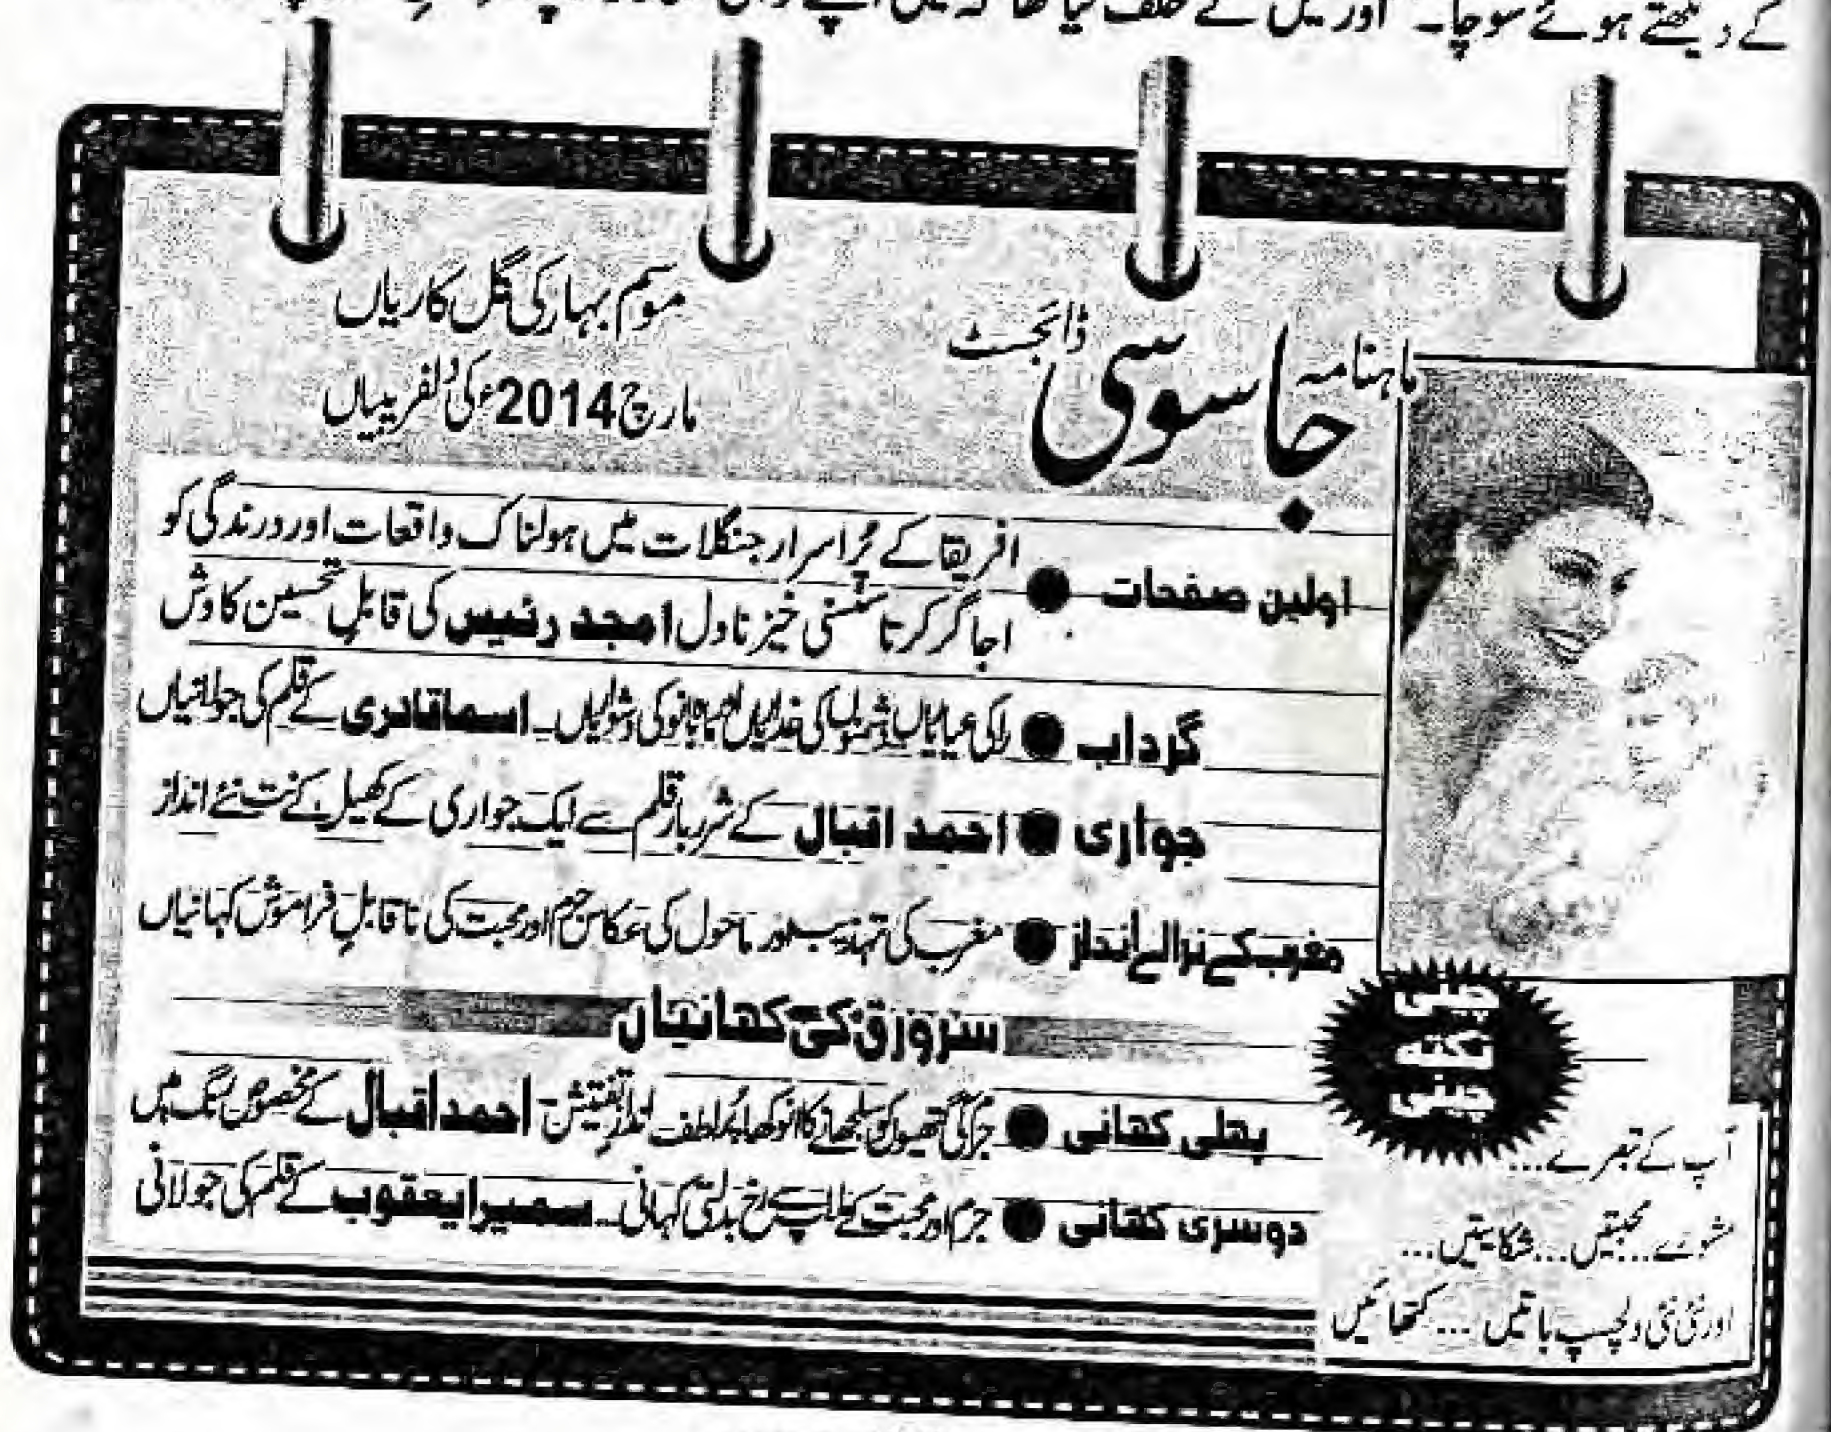 کے دیکھتے ہوئے سوچا۔ اور میں نے حلف لیا تھا کہ میں اپنے
ماہنامہ جاسوسی ڈائجسٹ
موسم بہار کی گل کاریاں
مارچ 2014ء کی دلفریبیاں
اولین صفحات ● افریقا کے پُراسرار جنگلات میں ہولناک واقعات اور درندگی کو
اجاگر کرتا سنسنی خیز ناول امجد رئیس کی قابلِ تحسین کاوش
گرداب ● را کی عیاریاں دشمنوں کی غداریاں ماہ بانو کی دشواریاں۔ اسما قادری کے قلم کی جولانیاں
جواری ● احمد اقبال کے شرربار قلم سے ایک جواری کے کھیل کے نت نئے انداز
مغرب کے نرالے انداز ● مغرب کی تہذیب اور ماحول کی عکاس جرم اور محبت کی ناقابلِ فراموش کہانیاں
سرورق کی کہانیاں
پہلی کہانی ● جرم کی گتھیوں کو سلجھانے کا انوکھا پُرلطف اندازِ تفتیش احمد اقبال کے مخصوص رنگ میں
دوسری کہانی ● جرم اور محبت کے ملاپ سے رخ بدلتی کہانی۔ سمیرا یعقوب کے قلم کی جولانی
چینی
نکتہ
چینی
آپ کے تبصرے...
مشورے... محبتیں... شکایتیں...
اور نئی نئی دلچسپ باتیں... کتھائیں